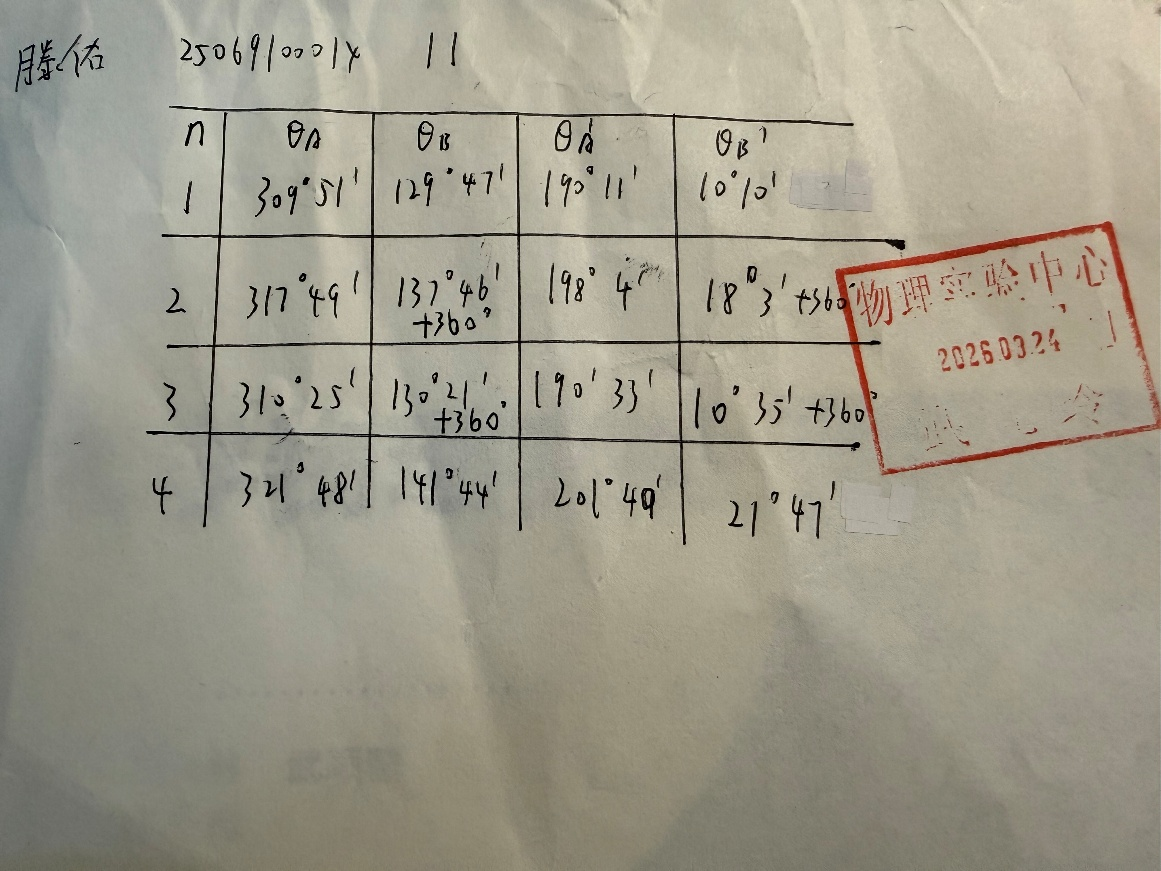 滕佑 2506910001X 11
n θA θB θA' θB'
1 309°51' 129°47' 190°11' 10°10'
2 317°49' 137°46' +360° 198°4' 18°3' +360°
3 310°25' 130°21' +360° 190'33' 10°35' +360°
4 321°48' 141°44' 201°49' 21°47'
物理实验中心
2026.03.24